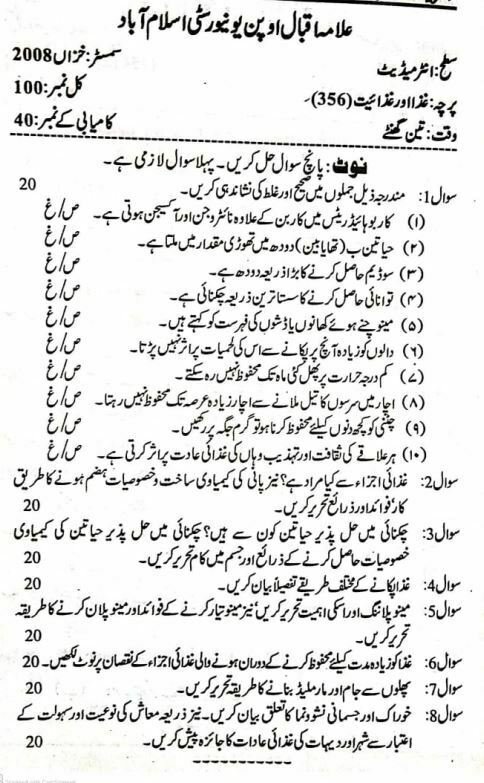 علامہ اقبال اوپن یونیورسٹی اسلام آباد
سطح: انٹرمیڈیٹ
سمسٹر: خزاں 2008
پرچہ: غذا اور غذائیت (356)۔
کل نمبر: 100
وقت: تین گھنٹے
کامیابی کے نمبر: 40
نوٹ: پانچ سوال حل کریں۔ پہلا سوال لازمی ہے۔
سوال1: مندرجہ ذیل جملوں میں صحیح اور غلط کی نشاندہی کریں۔ 20
(۱) کاربوہائیڈریٹس میں کاربن کے علاوہ نائٹروجن اور آکسیجن ہوتی ہے۔ ص/غ
(۲) حیاتین ب (تھایابین) دودھ میں تھوڑی مقدار میں ملتا ہے۔ ص/غ
(۳) سوڈیم حاصل کرنے کا بڑا ذریعہ دودھ ہے۔ ص/غ
(۴) توانائی حاصل کرنے کا سستا ترین ذریعہ چکنائی ہے۔ ص/غ
(۵) مینو چنے ہوئے کھانوں یا ڈشوں کی فہرست کو کہتے ہیں۔ ص/غ
(۶) دالوں کو زیادہ آنچ پر پکانے سے اس کی لحمیات پر اثر نہیں پڑتا۔ ص/غ
(۷) کم درجہ حرارت پر پھل کئی ماہ تک محفوظ نہیں رہ سکتے۔ ص/غ
(۸) اچار میں سرسوں کا تیل ملانے سے اچار زیادہ عرصہ تک محفوظ نہیں رہتا۔ ص/غ
(۹) چٹنی کو کچھ دنوں کیلئے محفوظ کرنا ہو تو گرم جگہ پر رکھیں۔ ص/غ
(۱۰) ہر علاقے کی ثقافت اور تہذیب وہاں کی غذائی عادت پر اثر کرتی ہے۔ ص/غ
سوال2: غذائی اجزاء سے کیا مراد ہے؟ نیز پانی کی کیمیاوی ساخت و خصوصیات ہضم ہونے کا طریق
کار، فوائد اور ذرائع تحریر کریں۔ 20
سوال3: چکنائی میں حل پذیر حیاتین کون سے ہیں؟ چکنائی میں حل پذیر حیاتین کی کیمیاوی
خصوصیات حاصل کرنے کے ذرائع اور جسم میں کام تحریر کریں۔ 20
سوال4: غذا پکانے کے مختلف طریقے تفصیلاً بیان کریں۔ 20
سوال5: مینو پلاننگ اور اسکی اہمیت تحریر کریں، نیز مینو تیار کرنے کے فوائد اور مینو پلان کرنے کا طریقہ
تحریر کریں۔ 20
سوال6: غذا کو زیادہ مدت کیلئے محفوظ کرنے کے دوران ہونے والی غذائی اجزاء کے نقصان پر نوٹ لکھیں۔ 20
سوال7: پھلوں سے جام اور مارملیڈ بنانے کا طریقہ تحریر کریں۔ 20
سوال8: خوراک اور جسمانی نشوونما کا تعلق بیان کریں۔ نیز ذریعہ معاش کی نوعیت اور سہولت کے
اعتبار سے شہر اور دیہات کی غذائی عادات کا جائزہ پیش کریں۔ 20